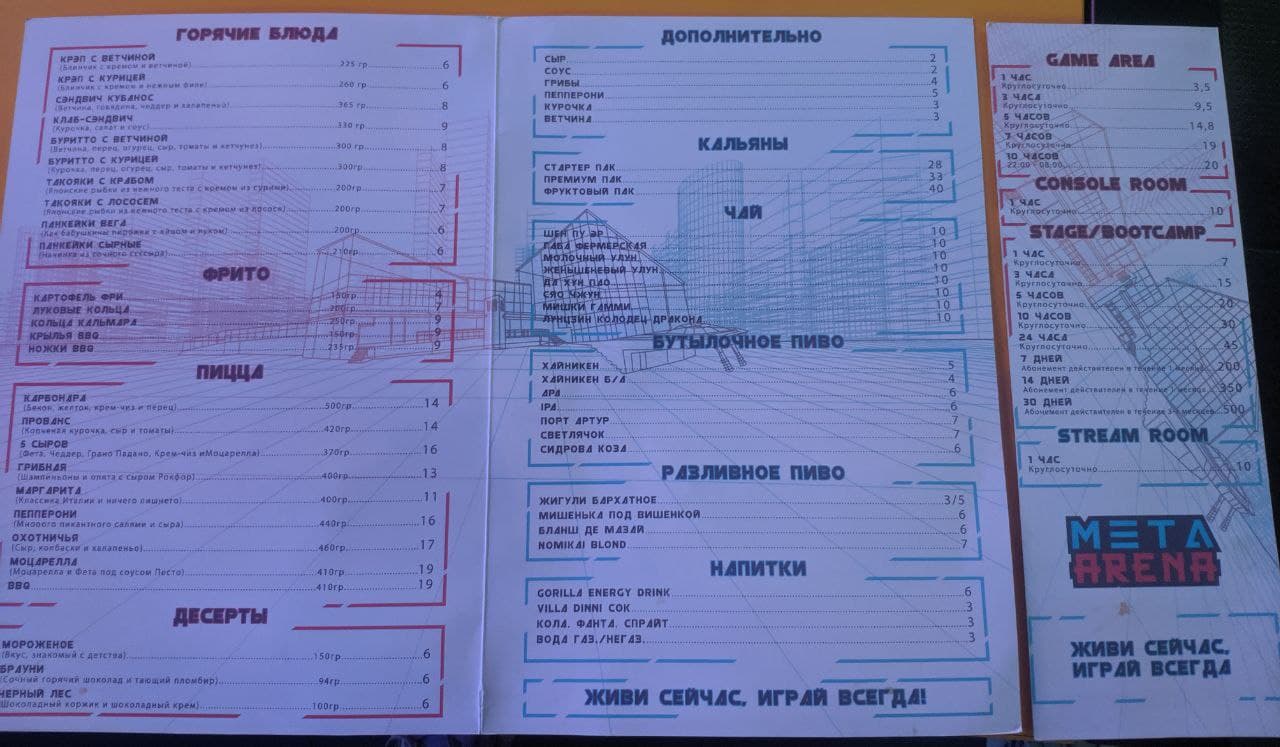 ГОРЯЧИЕ БЛЮДА
КРЭП С ВЕТЧИНОЙ
(Блинчик с кремом и ветчиной) 225 гр 6
КРЭП С КУРИЦЕЙ
(Блинчик с кремом и нежным филе) 260 гр 6
СЭНДВИЧ КУБАНОС
(Ветчина, говядина, чеддер и халапеньо) 365 гр 8
КЛАБ-СЭНДВИЧ
(Курочка, салат и соус) 330 гр 9
БУРИТТО С ВЕТЧИНОЙ
(Ветчина, перец, огурец, сыр, томаты и кетчунез) 300 гр 8
БУРИТТО С КУРИЦЕЙ
(Курочка, перец, огурец, сыр, томаты и кетчунез) 300гр 8
ТАКОЯКИ С КРАБОМ
(Японские рыбки из нежного теста с кремом из сурими) 200гр 7
ТАКОЯКИ С ЛОСОСЕМ
(Японские рыбки из нежного теста с кремом из лосося) 200гр 7
ПАНКЕЙКИ ВЕГА
(Как бабушкины пирожки с яйцом и луком) 200гр 6
ПАНКЕЙКИ СЫРНЫЕ
(Начинка из сочного 210гр 6
ФРИТО
КАРТОФЕЛЬ ФРИ 150гр 4
ЛУКОВЫЕ КОЛЬЦА 200гр 7
КОЛЬЦА КАЛЬМАРА 250гр 9
КРЫЛЬЯ BBQ 150гр 9
НОЖКИ BBQ 235гр 9
ПИЦЦА
КАРБОНАРА
(Бекон, желток, крем-чиз и перец) 500гр 14
ПРОВАНС
(Копченая курочка, сыр и томаты) 420гр 14
5 СЫРОВ
(Фета, Чеддер, Грано Падано, Крем-чиз иМоцарелла) 370гр 16
ГРИБНАЯ
(Шампиньоны и опята с сыром Рокфор) 400гр 13
МАРГАРИТА
(Классика Италии и ничего лишнего) 400гр 11
ПЕППЕРОНИ
(Мноооого пикантного салями и сыра) 440гр 16
ОХОТНИЧЬЯ
(Сыр, колбаски и халапеньо) 460гр 17
МОЦАРЕЛЛА
(Моцарелла и Фета под соусом Песто) 410гр 19
BBQ 410гр 19
ДЕСЕРТЫ
МОРОЖЕНОЕ
(Вкус, знакомый с детства) 150гр 6
БРАУНИ
(Сочный горячий шоколад и тающий пломбир) 94гр 6
ЧЕРНЫЙ ЛЕС
(Шоколадный коржик и шоколадный крем) 100гр 6
ДОПОЛНИТЕЛЬНО
СЫР 2
СОУС 2
ГРИБЫ 4
ПЕППЕРОНИ 5
КУРОЧКА 3
ВЕТЧИНА 3
КАЛЬЯНЫ
СТАРТЕР ПАК 28
ПРЕМИУМ ПАК 33
ФРУКТОВЫЙ ПАК 40
ЧАЙ
ШЕН ПУ ЭР 10
ГАБА ФЕРМЕРСКАЯ 10
МОЛОЧНЫЙ УЛУН 10
ЖЕНЬШЕНЕВЫЙ УЛУН 10
ДА ХУН ПАО 10
СЯО ЧЖУН 10
МИШКИ ГАММИ 10
ЛУНЦЗИН КОЛОДЕЦ ДРАКОНА 10
БУТЫЛОЧНОЕ ПИВО
ХАЙНИКЕН 5
ХАЙНИКЕН Б/А 4
APA 6
IPA 6
ПОРТ АРТУР 7
СВЕТЛЯЧОК 7
СИДРОВА КОЗА 6
РАЗЛИВНОЕ ПИВО
ЖИГУЛИ БАРХАТНОЕ 3/5
МИШЕНЬКА ПОД ВИШЕНКОЙ 6
БЛАНШ ДЕ МАЗАЙ 6
NOMIKAI BLOND 7
НАПИТКИ
GORILLA ENERGY DRINK 6
VILLA DINNI СОК 3
КОЛА. ФАНТА. СПРАЙТ 3
ВОДА ГАЗ./НЕГАЗ. 3
ЖИВИ СЕЙЧАС, ИГРАЙ ВСЕГДА!
GAME AREA
1 ЧАС
Круглосуточно 3,5
3 ЧАСА
Круглосуточно 9,5
5 ЧАСОВ
Круглосуточно 14,8
7 ЧАСОВ
Круглосуточно 19
10 ЧАСОВ
22:00 - 08:00 20
CONSOLE ROOM
1 ЧАС
Круглосуточно 10
STAGE/BOOTCAMP
1 ЧАС
Круглосуточно 7
3 ЧАСА
Круглосуточно 15
5 ЧАСОВ
Круглосуточно 20
10 ЧАСОВ
Круглосуточно 30
24 ЧАСА
Круглосуточно 45
7 ДНЕЙ
Абонемент действителен в течение 1 месяца 200
14 ДНЕЙ
Абонемент действителен в течение 1 месяца 350
30 ДНЕЙ
Абонемент действителен в течение месяцев 500
STREAM ROOM
1 ЧАС
Круглосуточно 10
META
ARENA
ЖИВИ СЕЙЧАС,
ИГРАЙ ВСЕГДА